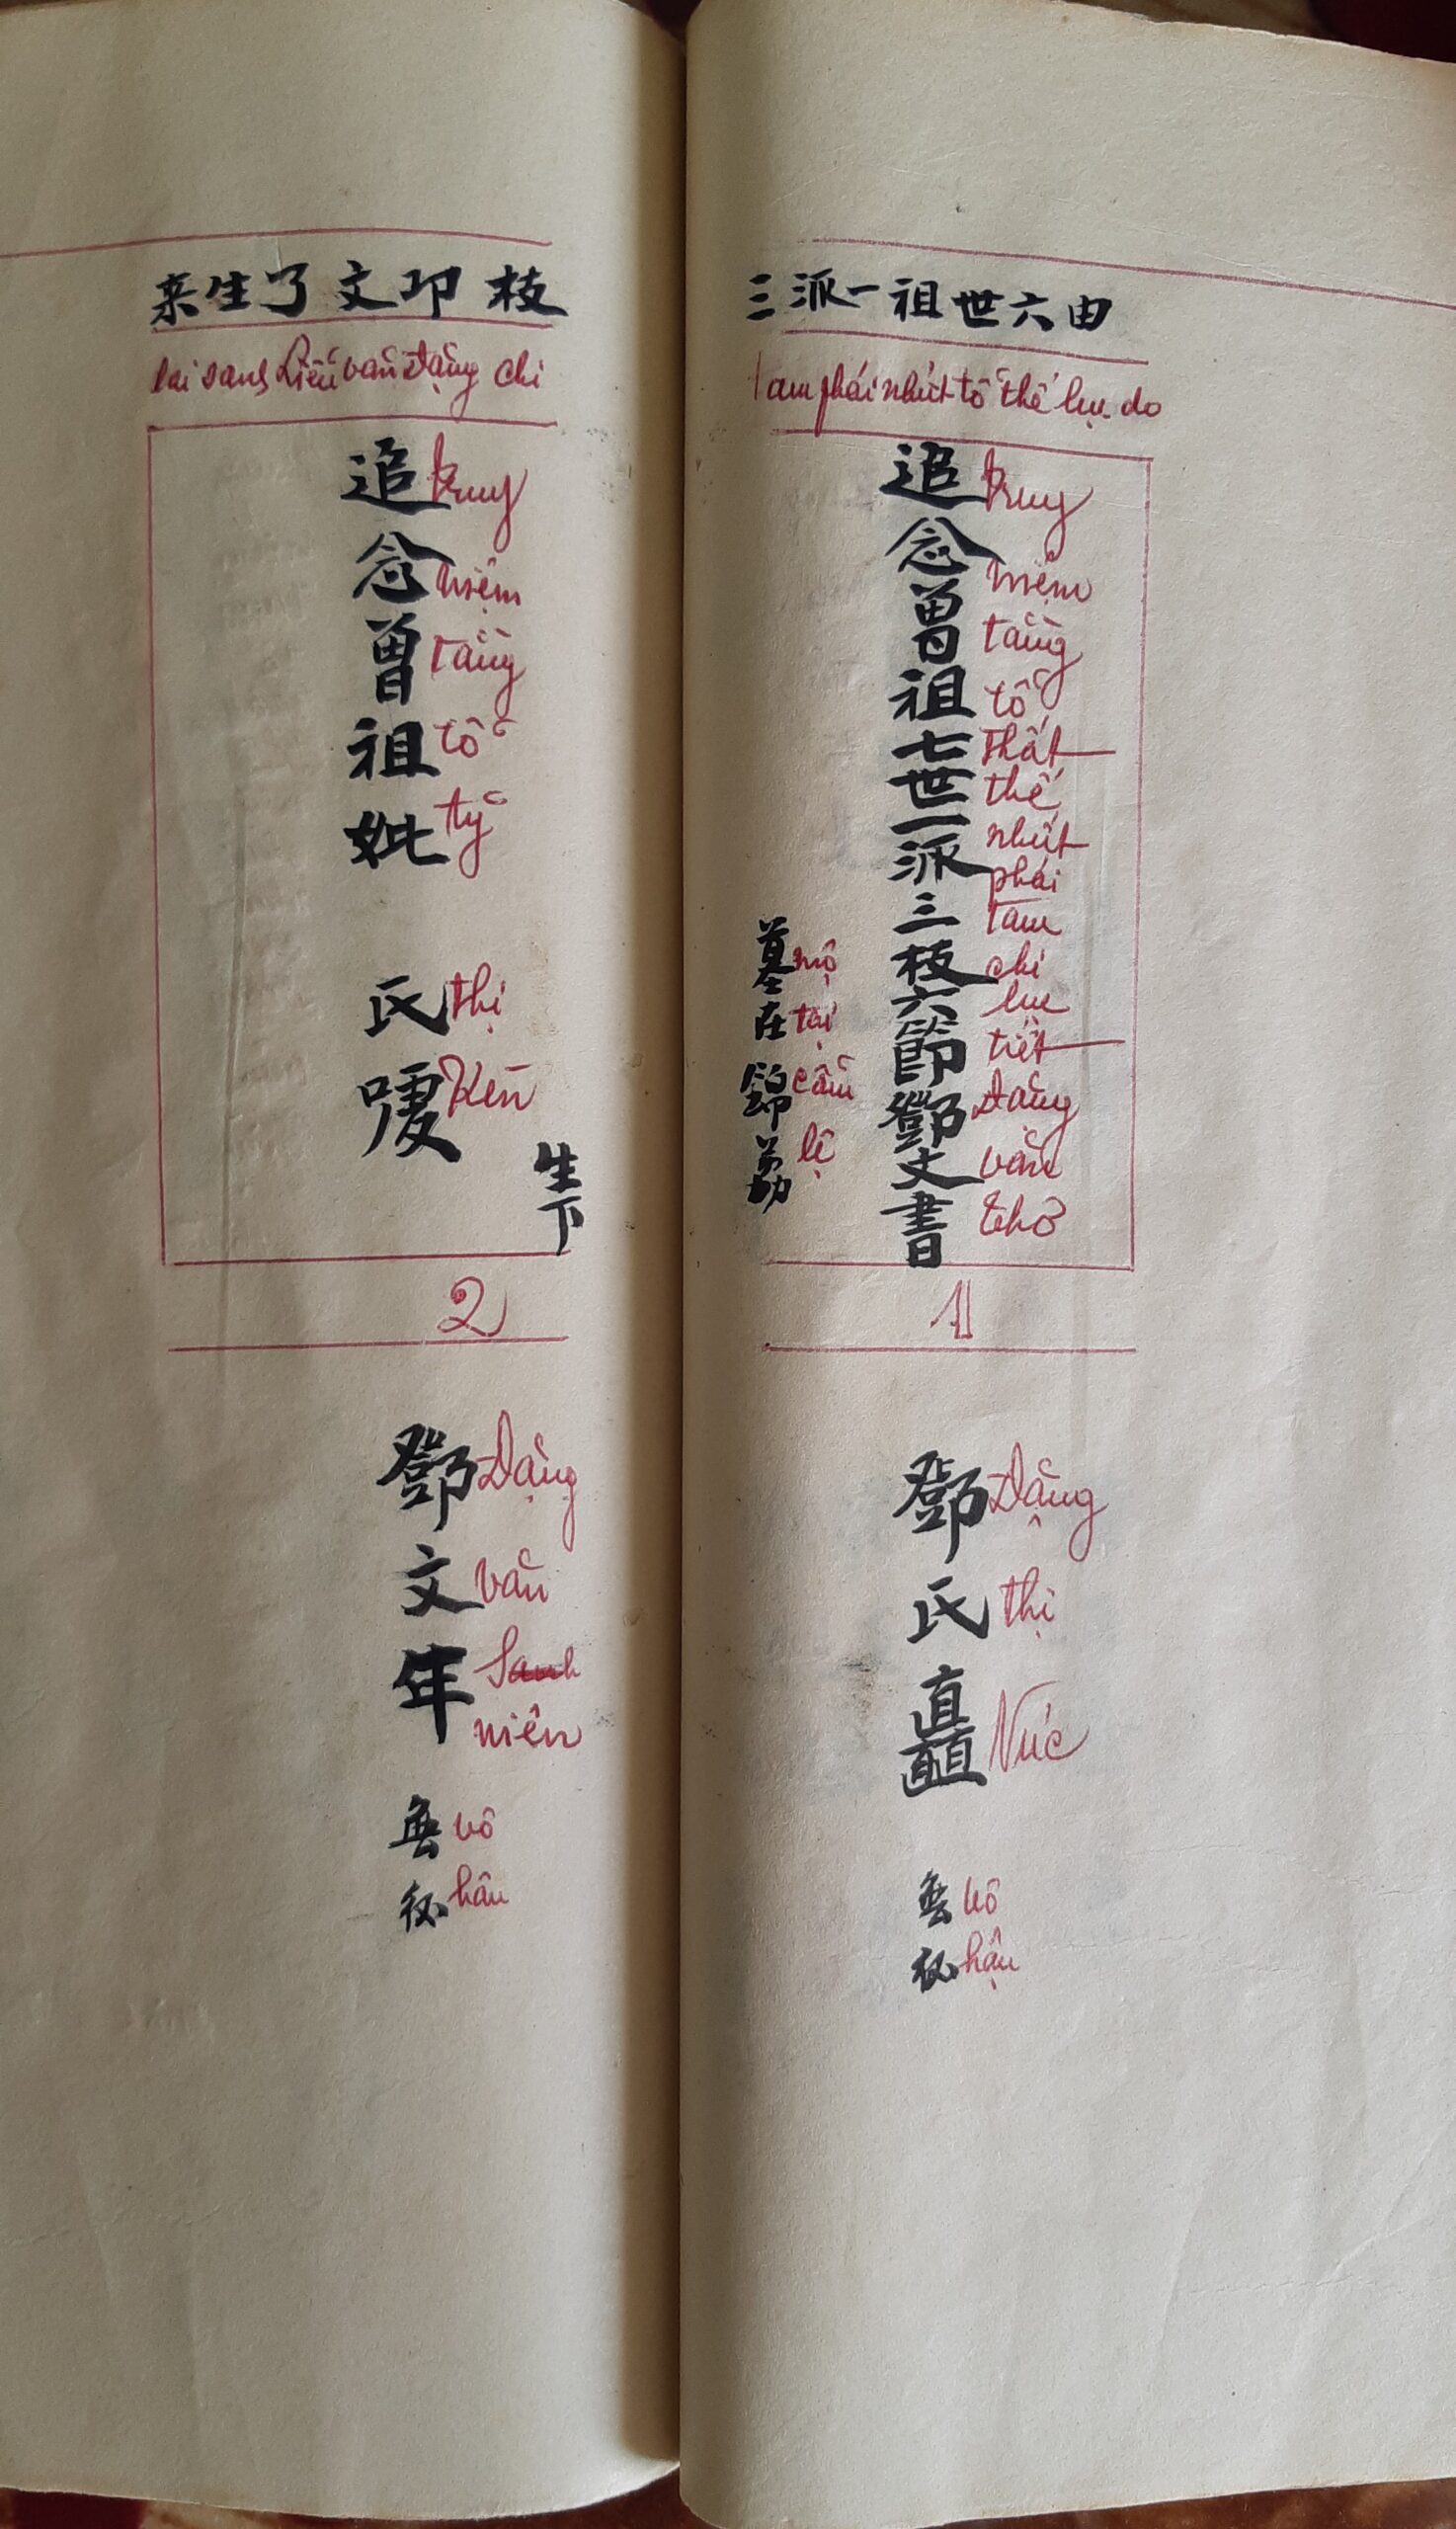 三派一祖世六由
tam phái nhứt tổ thế lục do
追念曾祖七世一派三枝六節鄧文書
truy niệm tằng tổ thất thế nhứt phái tam chi lục tiết Đặng văn thơ
墓在錦荔
mộ tại cẩm lệ
1
鄧氏矗
Đặng thị Nức
無後
vô hậu
来生了文邓枝
lai sanh Liễu văn Đặng chi
追念曾祖妣
truy niệm tằng tổ tỷ
氏𠸗
thị Kén
生下
2
鄧文年
Đặng văn Sanh niên
無後
vô hâu